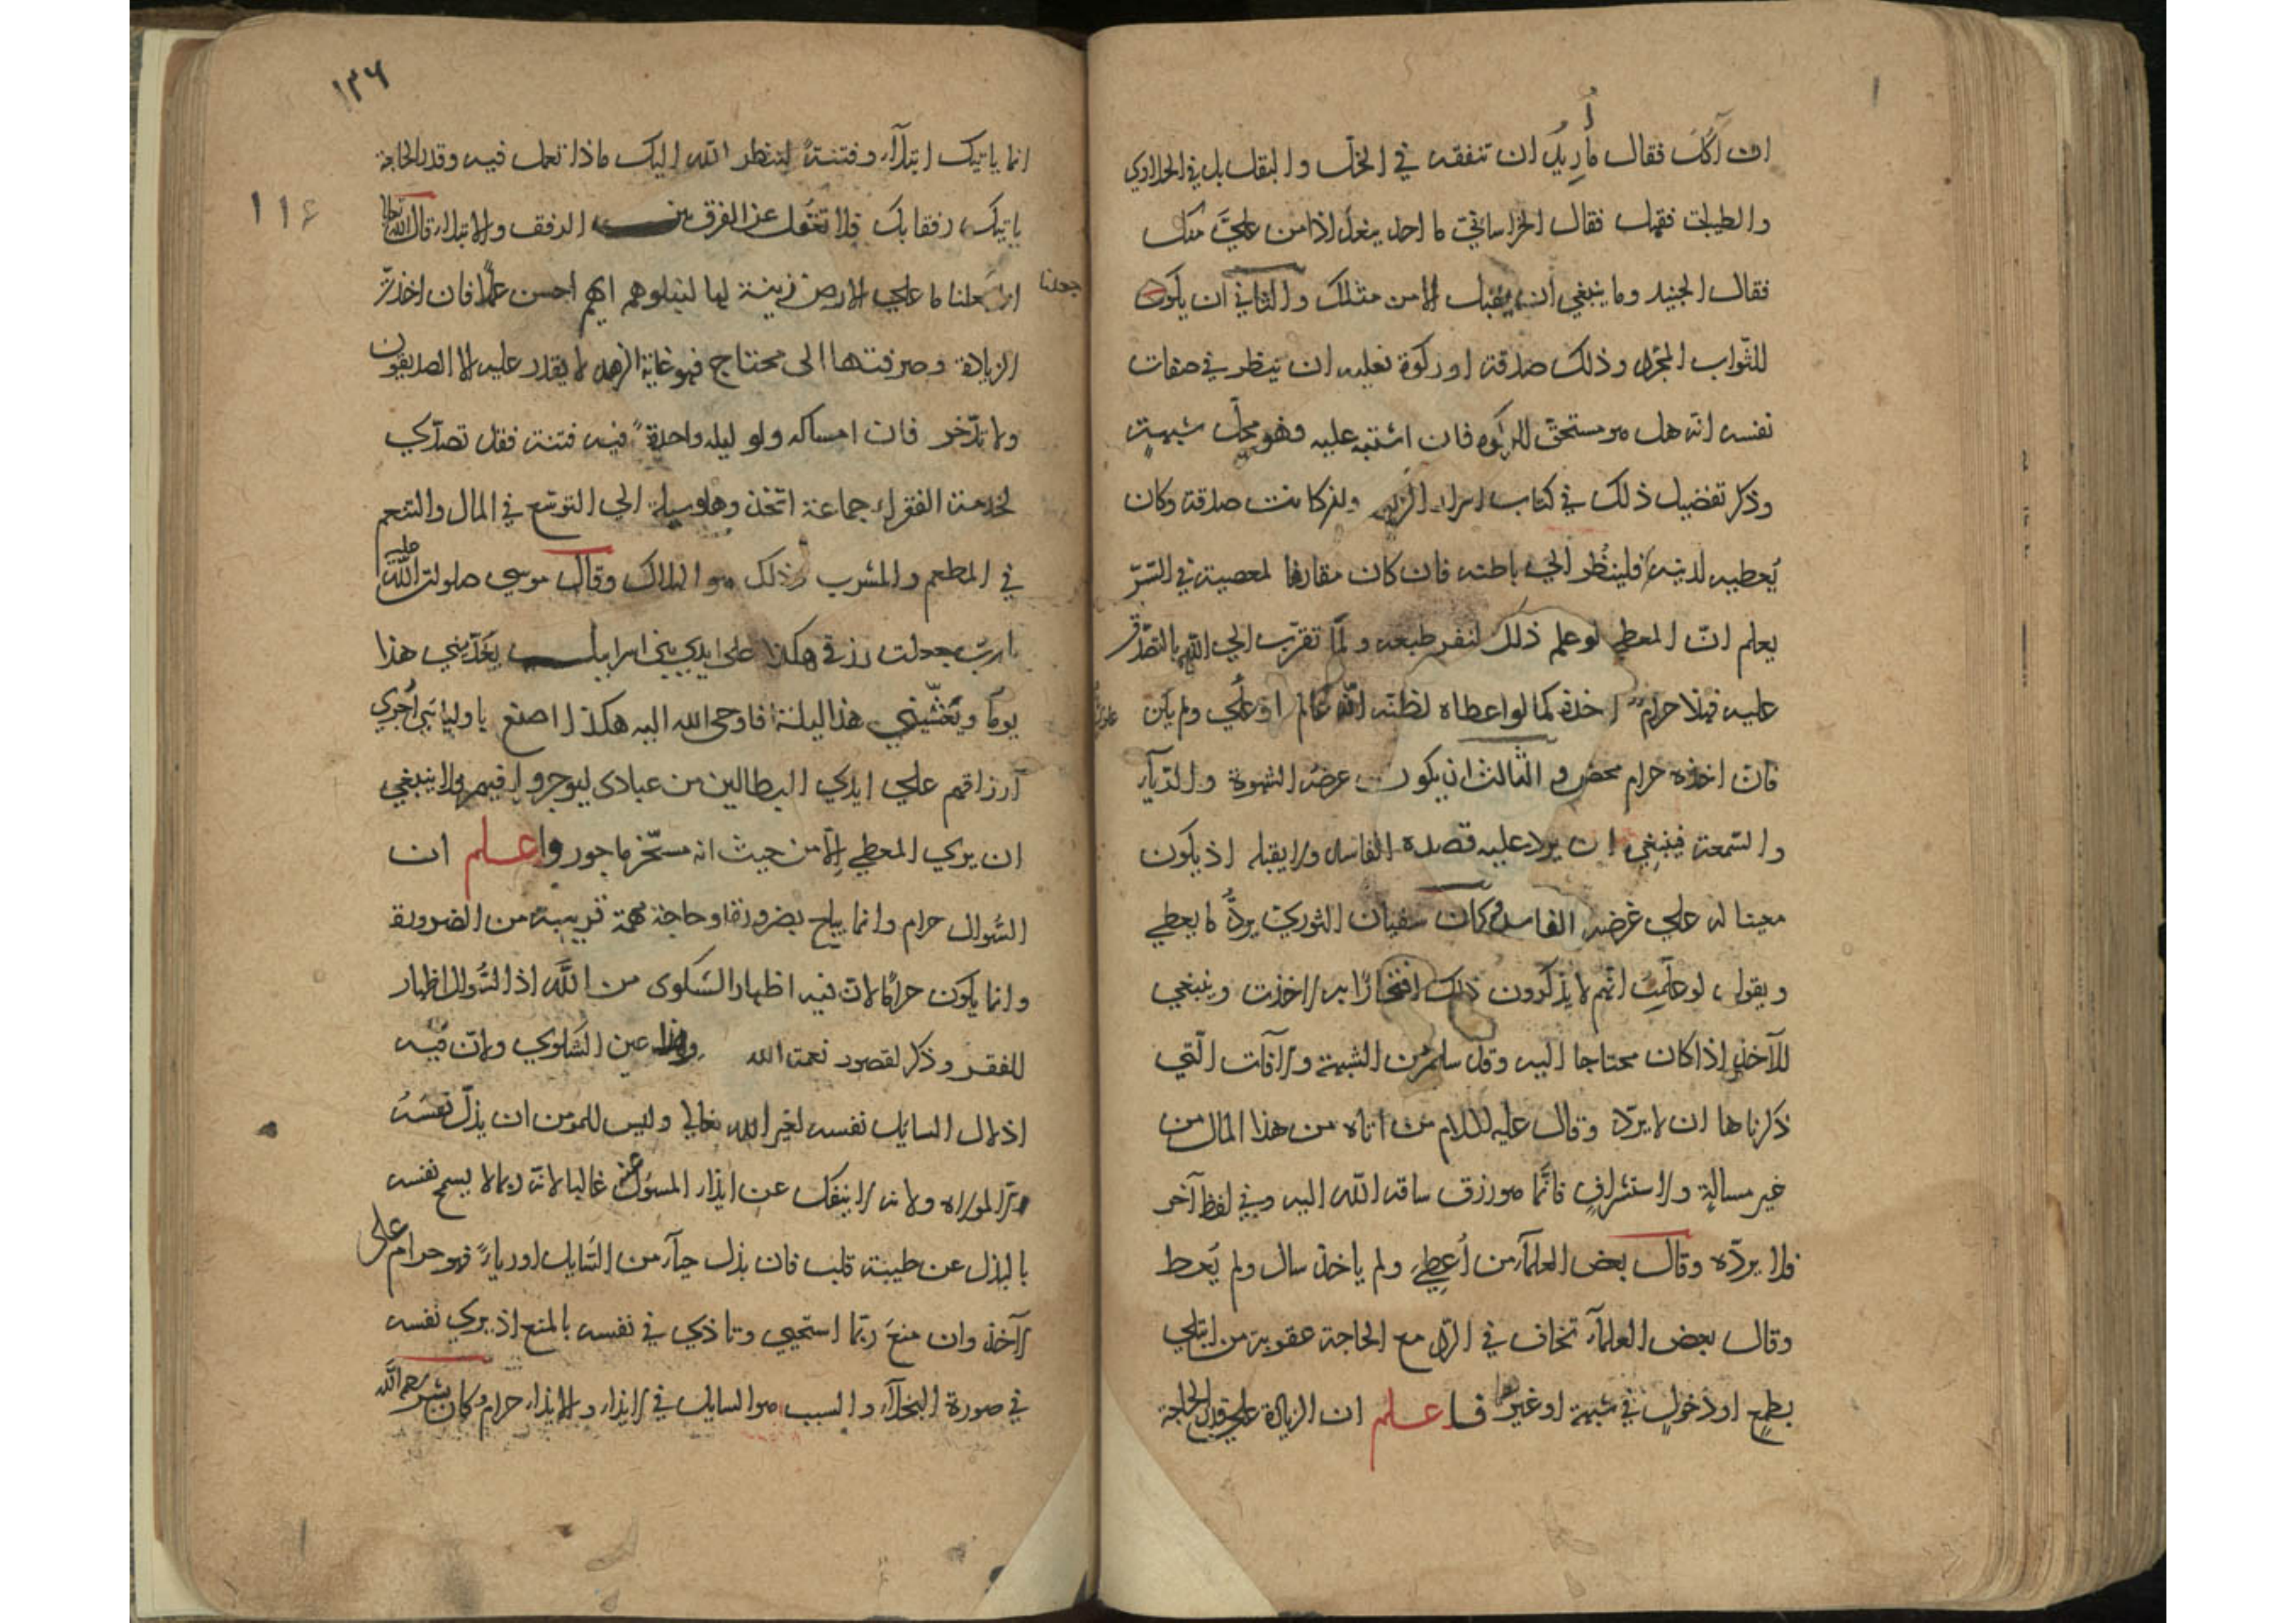 ان آكل فقال ما أريد ان تنفقه في الخل والبقل بل في الحلاوي
والطيبات فقبل فقال الخراساني ما احد ببغداذ امن علي منك
فقال الجنيد وما ينبغي ان يقبل الا من مثلك والثاني ان يكون
للثواب المجرد وذلك صدقة او زكوة فعليه ان ينظر في صفات
نفسه انه هل هو مستحق للزكوة فان اشتبه عليه فهو محل شبهة
وذكر تفضيل ذلك في كتاب اسرار الزكوة وان كانت صدقة وكان
يعطيه لدينه فلينظر الي باطنه فان كان مقارفا لمعصية في السر
يعلم ان المعطي لو علم ذلك لنفر طبعه ولما تقرب الي الله بالتصدق
عليه فهذا حرام اخذه كما لو اعطاه لظنه انه عالم او علوي ولم يكن
فان اخذه حرام محض والثالث ان يكون غرضه الشهوة والريآء
والسمعة فينبغي ان يرد عليه قصده الفاسد ولا يقبله اذ يكون
معينا له علي غرضه الفاسد وكان سفيان الثوري يرد ما يعطي
ويقول لو علمت انهم لا يذكرون ذلك افتخارا به لاخذت وينبغي
للآخذ اذا كان محتاجا اليه وقد سلم من الشبهة والآفات التي
ذكرناها ان لا يرده وقال عليه السلام من اتاه من هذا المال من
غير مسالة ولا استشراف فانما هو رزق ساقه الله اليه وفي لفظ آخر
فلا يرده وقال بعض العلمآء من أعطي ولم ياخذ سال ولم يعط
وقال بعض العلمآء تخاف في الرد مع الحاجة عقوبة من ابتلي
بطمع او دخول في شبهة او غيرها فاعلم ان الزيادة علي قدر الحاجة
١٣٦
١١٤
انما ياتيك ابتلآء وفتنة لينظر الله اليك ماذا تعمل فيه وقدر الحاجة
ياتيك رفقا بك فلا تغفل عن الفرق بين الرفق والابتلاء قال الله تعالى
انا جعلنا ما علي الارض زينة لها لنبلوهم ايهم احسن عملا فان اخذت
جعلنا
الزيادة وصرفتها الى محتاج فهو غاية الزهد لا يقدر عليه الا الصديقون
ولا تدخر فان امساكه ولو ليلة واحدة فيه فتنة فقد تصدي
لخدمة الفقراء جماعة اتخذوها وسيلة الي التوسع في المال والتنعم
في المطعم والمشرب وذلك هو الهلاك وقال موسي صلوات الله عليه
يا رب جعلت رزقي هكذا على ايدي بني اسرايل يغديني هذا
يوما ويعشيني هذا ليلة فاوحى الله اليه هكذا اصنع باوليائي أجري
أرزاقهم علي ايدي البطالين من عبادى ليوجروا فيهم ولا ينبغي
ان يري المعطي الا من حيث انه مسخر ماجور واعلم ان
السؤال حرام وانما يباح بضرورة او حاجة مهمة قريبة من الضرورة
وانما يكون حراما لان فيه اظهار الشكوى من الله اذ السؤال اظهار
للفقر وذكر لقصور نعمة الله وهذا عين الشكوي ولان فيه
اذلال السايل نفسه لغير الله تعالي وليس للمومن ان يذل نفسه
الا لمولاه ولانه لا ينفك عن ايذاء المسؤل عنه غالبا لانه ربما لا يسمح نفسه
بالبذل عن طيبة قلب فان بذل حيآء من السايل او رياء فهو حرام على
الآخذ وان منع ربما استحيي وتاذي في نفسه بالمنع اذ يري نفسه
في صورة البخلآء والسبب هو السايل في الايذاء والايذاء حرام وكان بشر رحمه الله